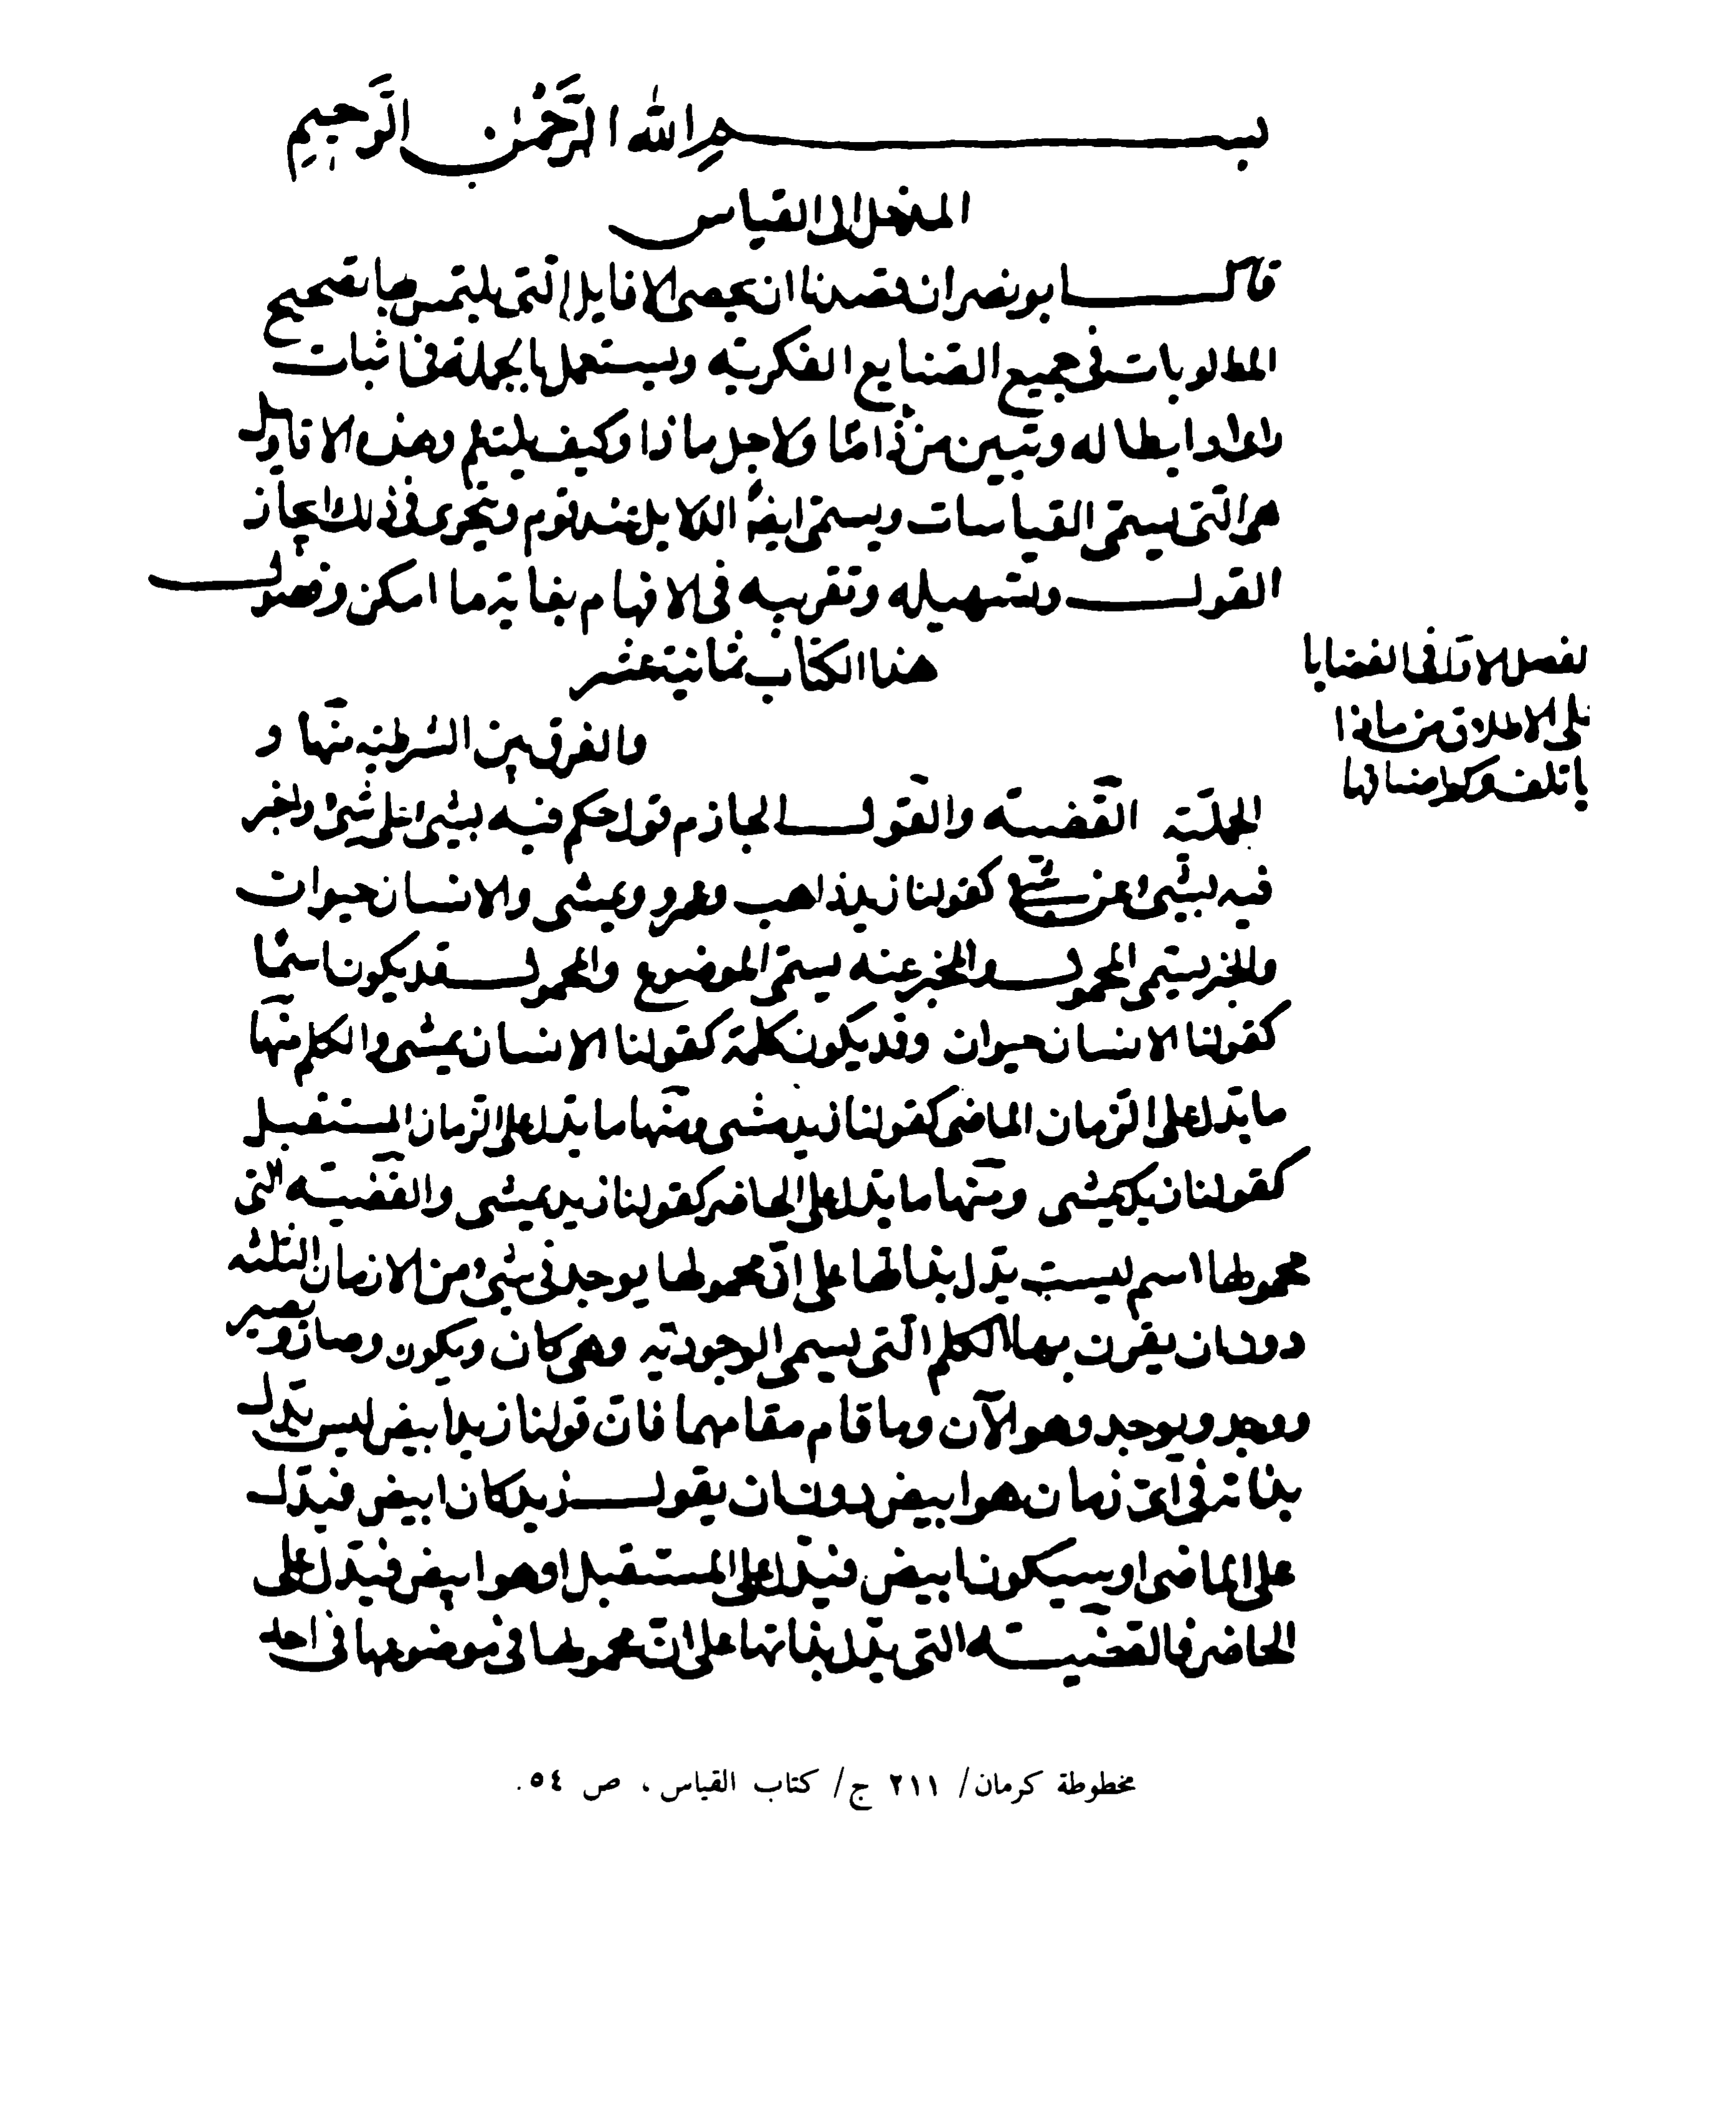 بسم الله الرَّحمٰن الرَّحيم
المدخل الى القياس
قال ابو نصر ان قصدنا ان نحصى الاقاويل التى يلتمس بها تصحيح
المطلوبات فى جميع الصّنايع الفكريّه ويستعمل بالجملة فى اثبات
راى او ابطاله ونبيّن من اىّ ولاجل ماذا وكيف يلتئم وهذه الاقاويل
هى الّتى يسمّى القياسات ويسمّى ايضًا الدلايل عند قوم ونتحرى فى ذلك ايجاز
القول وتسهيله وتقريبه فى الافهام بغاية ما امكن وفصول
هذا الكتاب ثمانية عشر
الفصل الاوّل فى القضايا
على الاطلاق من ماذا
ياتلف وكم اصنافها
والفرق بين الشرطيّه منها و
الحمليّة القضيّة والقول الجازم قول حكم فيه بشىء على شىء واخبر
فيه بشىء عن شىء كقولنا زيد ذاهب وعمرو يمشى والانسان حيوان
والخبر يسمّى المحمول والمخبر عنه يسمّى الموضوع والمحمول قد يكون اسمًا
كقولنا الانسان حيوان وقد يكون كلمة كقولنا الانسان يمشى والكلم منها
ما يدّل على الزّمان الماضى كقولنا زيد مشى ومنها ما يدّل على الزمان المستقبل
كقولنا زيد يمشى ومنها ما يدّل على الحاضر كقولنا زيد يمشى والقضيّه التى
محمولها اسم ليست يدّل بذاتها على انّ محمولها يوجد فى شىء من الازمان الثلثه
دون ان يقرن بها الكلم الّتى يسمى الوجوديّه وهى كان ويكون وصار ويصير
ووجد ويوجد وهو الآن وما قام مقامها فانّ قولنا زيد ابيض ليس يدّل
بذاته فى اىّ زمان هو ابيض دون ان يقول زيد كان ابيض فيدّل
على الماضى او سيكون ابيض فيدّل على المستقبل او هو ابيض فيدّل على
الحاضر فالقضيّه التى يدّل بذاتها على انّ محمولها فى موضوعها فى احد
مخطوطة كرمان/ ٢١١ ج/ كتاب القياس، ص ٥٤.